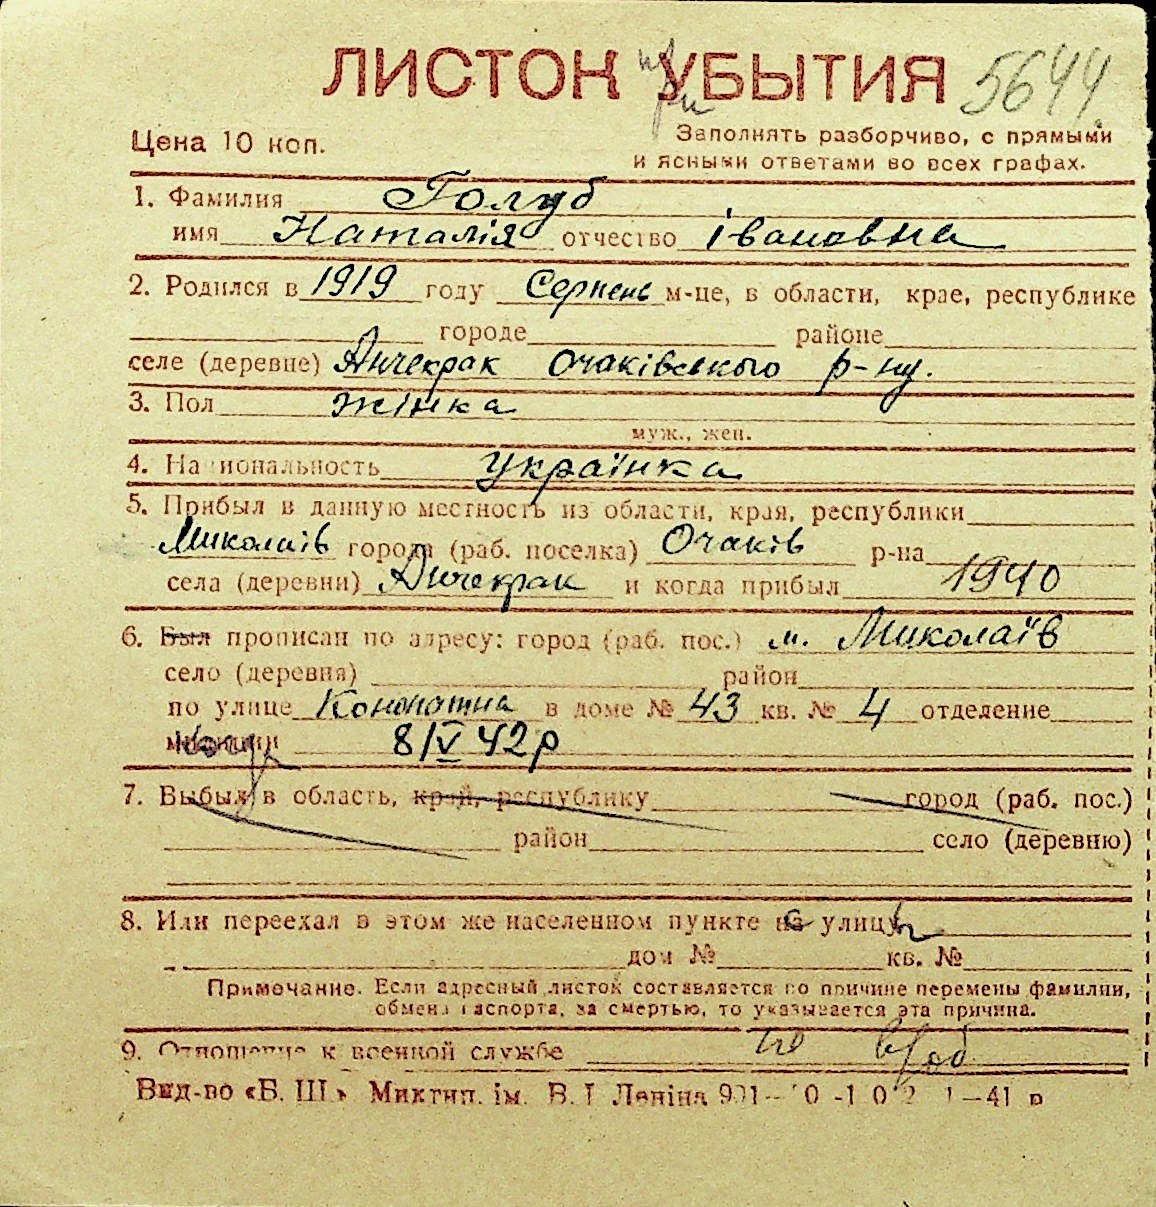 ЛИСТОК УБЫТИЯ при 5644.
Цена 10 коп. Заполнять разборчиво, с прямыми
и ясными ответами во всех графах.
1. Фамилия Голуб
имя Наталія отчество Івановна
2. Родился в 1919 году Серпень м-це, в области, крае, республике
городе районе
селе (деревне) Анчекрак Очаківського р-ну.
3. Пол жінка
муж., жен.
4. Национальность українка
5. Прибыл в данную местность из области, края, республики
Миколаїв города (раб. поселка) Очаків р-на
села (деревни) Анчекрак и когда прибыл 1940
6. Был прописан по адресу: город (раб. пос.) м. Миколаїв
село (деревня) район
по улице в доме № 43 кв. № 4 отделение
милиции 8/V 42р
7. Выбыл в область, край, республику город (раб. пос.)
район село (деревню)
8. Или переехал в этом же населенном пункте на улицу
дом № кв. №
Примечание. Если адресный листок составляется по причине перемены фамилии,
обмена паспорта, за смертью, то указывается эта причина.
9. Отношение к военной службе
Вид-во «Б. Ш.» Миктип. ім. В. І Леніна 41 р